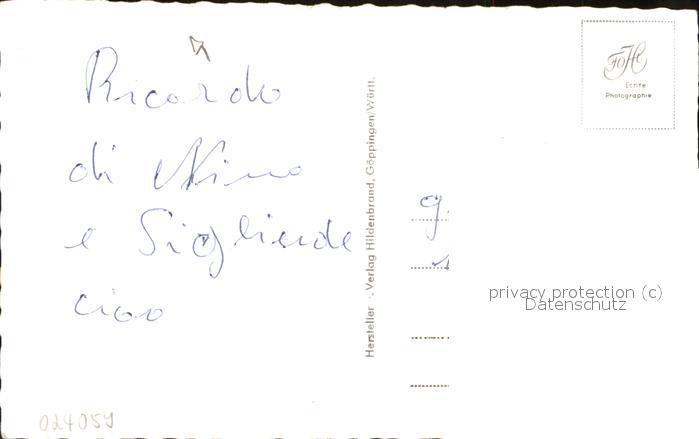 Ricordo
di Nino
e Siglinde
ciao
024059
Hersteller Verlag Hildenbrand, Göppingen/Württ.
FOHi
Echte
Photographie
g.
privacy protection (c)
Datenschutz